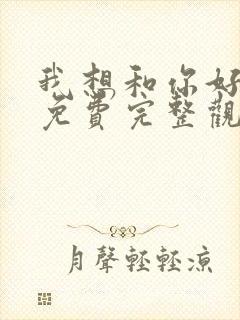 我想和你好
免費完整觀
月聲輕輕涼